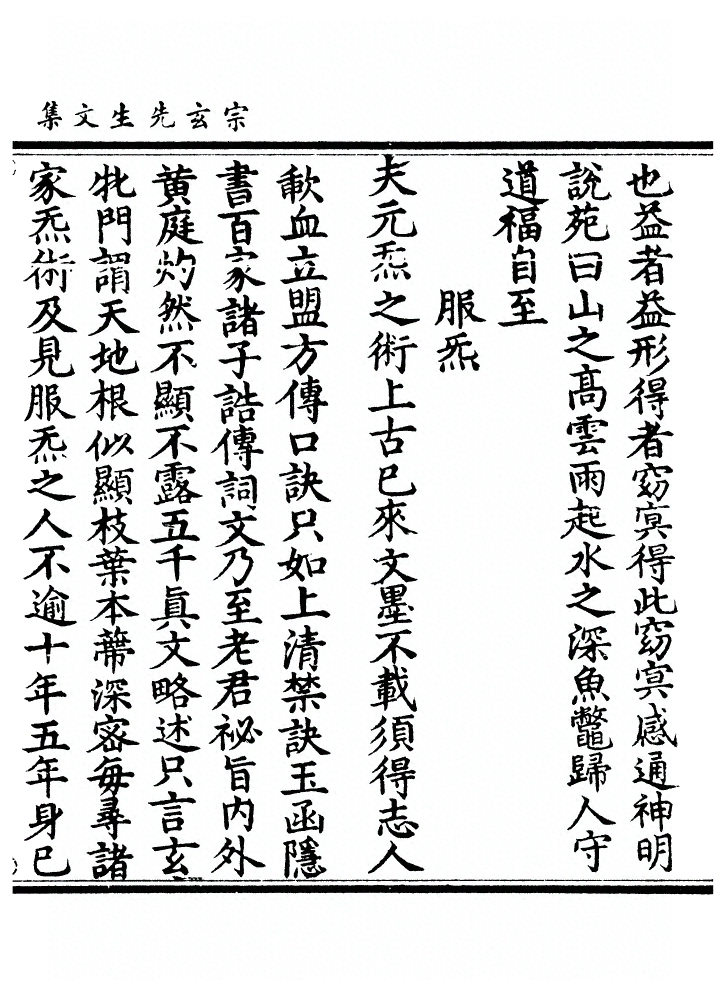 宗玄先生文集
也益者益形得者窈冥得此窈冥感通神明
說苑曰山之高雲雨起水之深魚鼈歸人守
道福自至
服炁
夫元炁之術上古已來文墨不載須得志人
歃血立盟方傳口訣只如上清禁訣玉函隱
書百家諸子誥傳詞文乃至老君祕旨內外
黃庭灼然不顯不露五千眞文略述只言玄
牝門謂天地根似顯枝葉本蔕深密每尋諸
家炁術及見服炁之人不逾十年五年身已